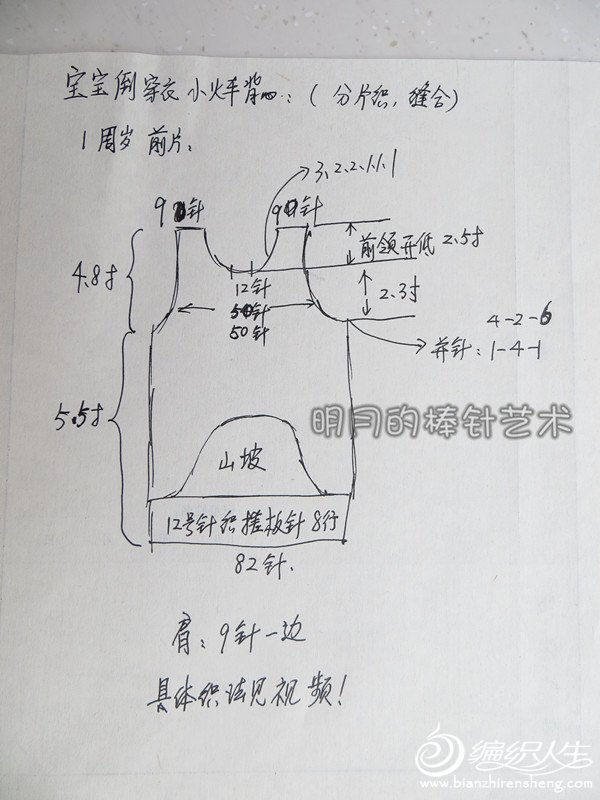 宝宝倒穿衣小火车背心：（分片织，缝合）
1周岁 前片：
3、2、2、1、1、1
9针
9针
前领开低 2.5寸
4.8寸
12针
2.3寸
50针
4-2-6
并针：1-4-1
5.5寸
明月的棒针艺术
山坡
12号针织搓板针8行
82针.
肩：9针一边
具体织法见视频！
编织人生
www.bianzhirensheng.com